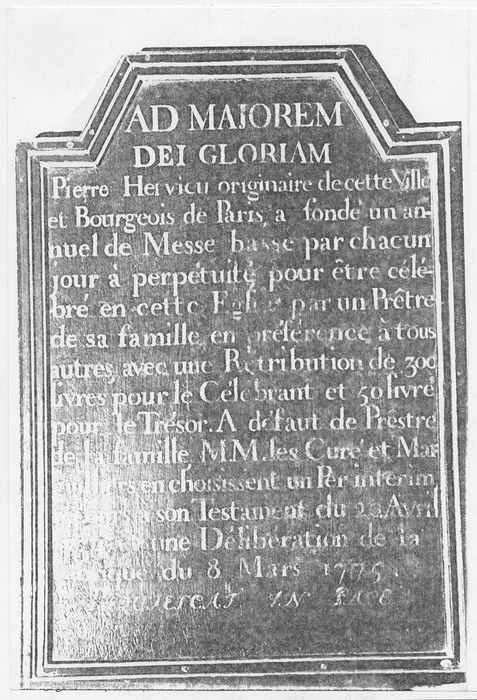 AD MAIOREM
DEI GLORIAM
Pierre Hervieu originaire de cette Ville
et Bourgeois de Paris, a fondé un an-
nuel de Messe basse par chacun
jour à perpétuité pour être célé-
bré en cette Eglise par un Prêtre
de sa famille, en préférence à tous
autres, avec une Rétribution de 300
livres pour le Célébrant et 50 livre
pour le Trésor. A défaut de Prêstre
de la famille MM. les Curé et Mar
en choisissent un Per interim
son Testament du Avril
une Délibération de la
du 8 Mars 1775.
REQUIESCAT IN PACE